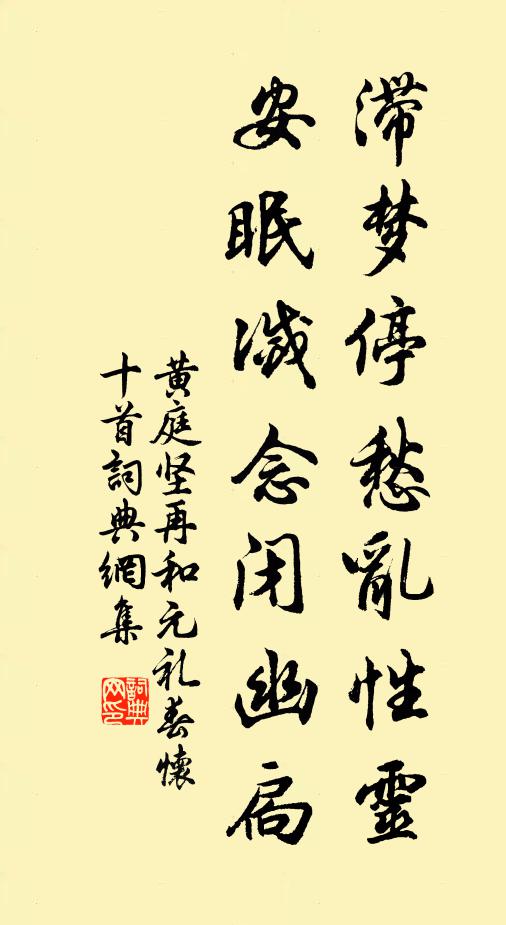 滞梦停愁亂性靈
安眠滅念闭幽扃
黄庭坚再和元礼春懷
十首詞典網集
詞典网印